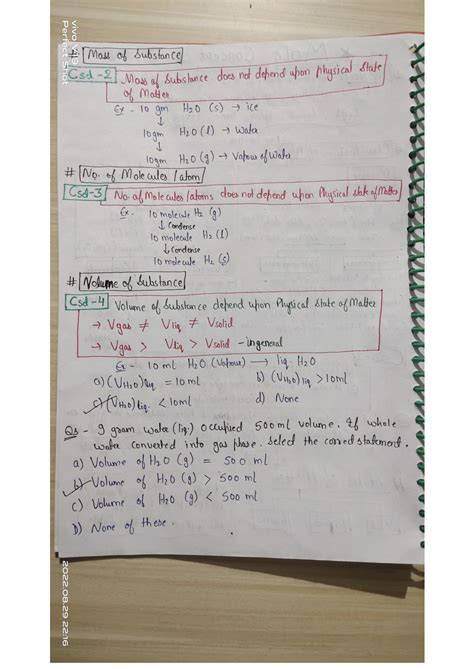 # Mass of Substance
Csd-2 Mass of Substance does not depend upon Physical State
of Matter
Ex - 10 gm H2O (s) → ice
↓
10gm H2O (l) → Water
↓
10gm H2O (g) → Vapour of Water
# No. of Molecules / atom
Csd-3 No. of Molecules/atoms does not depend upon Physical state of Matter
Ex- 10 molecule H2 (g)
↓ Condense
10 molecule H2 (l)
↓ Condense
10 molecule H2 (s)
# Volume of Substance
Csd-4 Volume of Substance depend upon Physical State of Matter
→ Vgas ≠ Vliq ≠ Vsolid
→ Vgas > Vliq > Vsolid - in general
Ex - 10 ml H2O (Vapour) → liq. H2O
a) (VH2O)liq. = 10ml b) (VH2O)liq > 10ml
c) (VH2O)liq. < 10ml d) None
Qs - 9 gram water (liq.) Occupied 500ml volume. If whole
water converted into gas phase. Select the correct statement.
a) Volume of H2O (g) = 500 ml
b) Volume of H2O (g) > 500 ml
c) Volume of H2O (g) < 500 ml
D) None of these.
vivo V19
Perfect Shot
2022.08.29 22:16